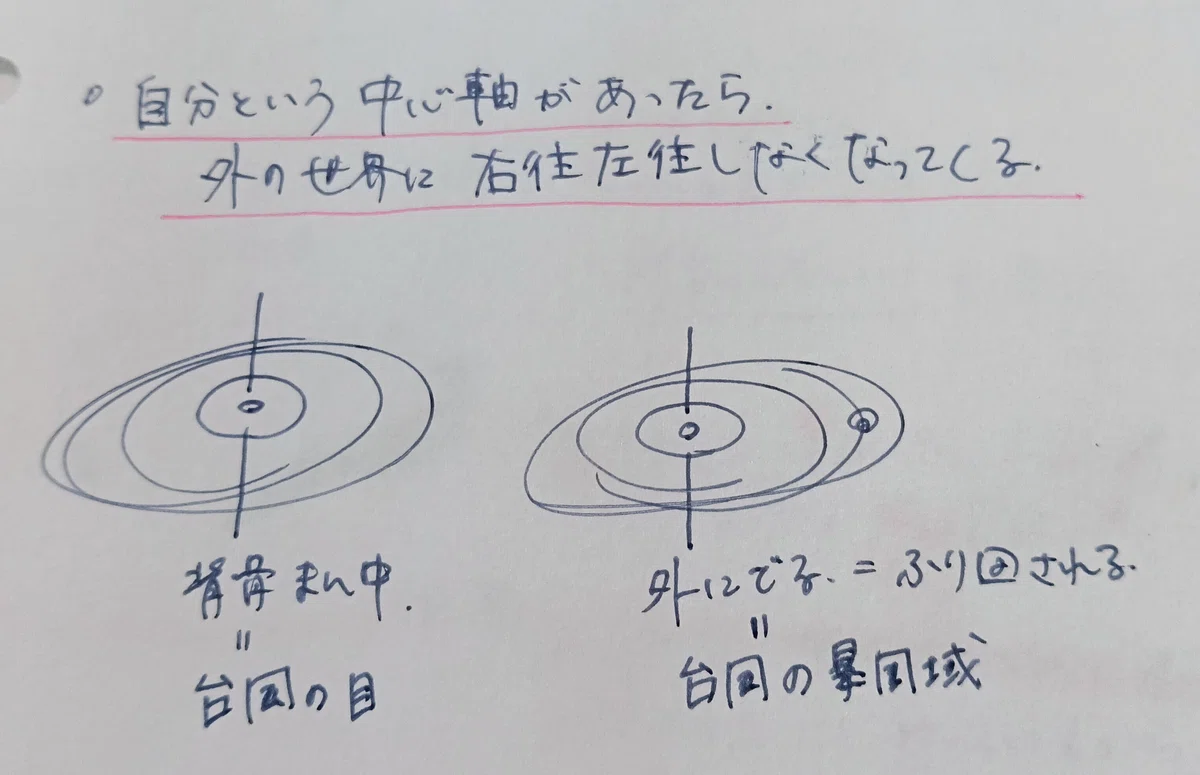 。自分という中心軸があったら.
外の世界に右往左往しなくなってくる.
背骨まん中.
=
台風の目
外にでる. = ふり回される.
=
台風の暴風域